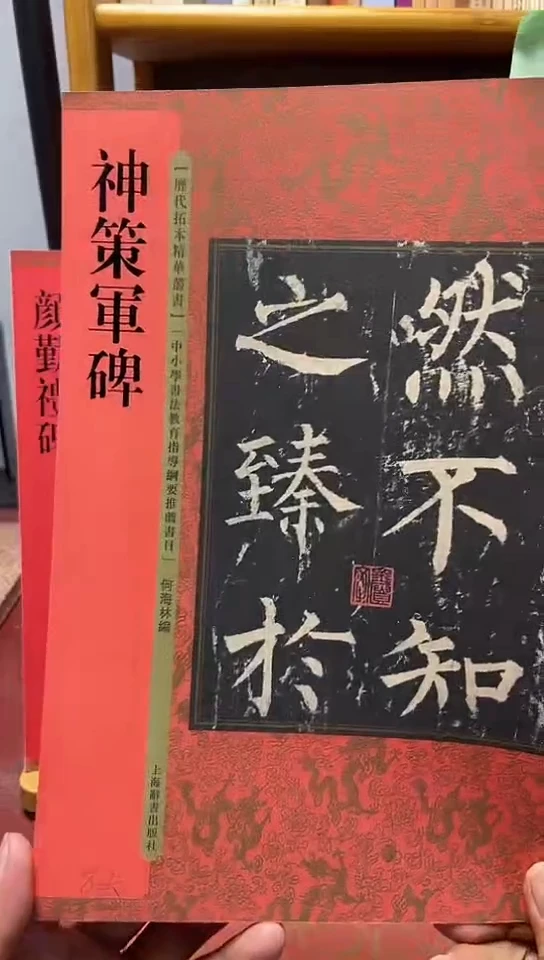 神策軍碑
【歷代拓本精華叢書】
「中小學書法教育指導綱要推薦書目」
何海林編
上海辭書出版社
然不知
之臻於
顏勤禮碑